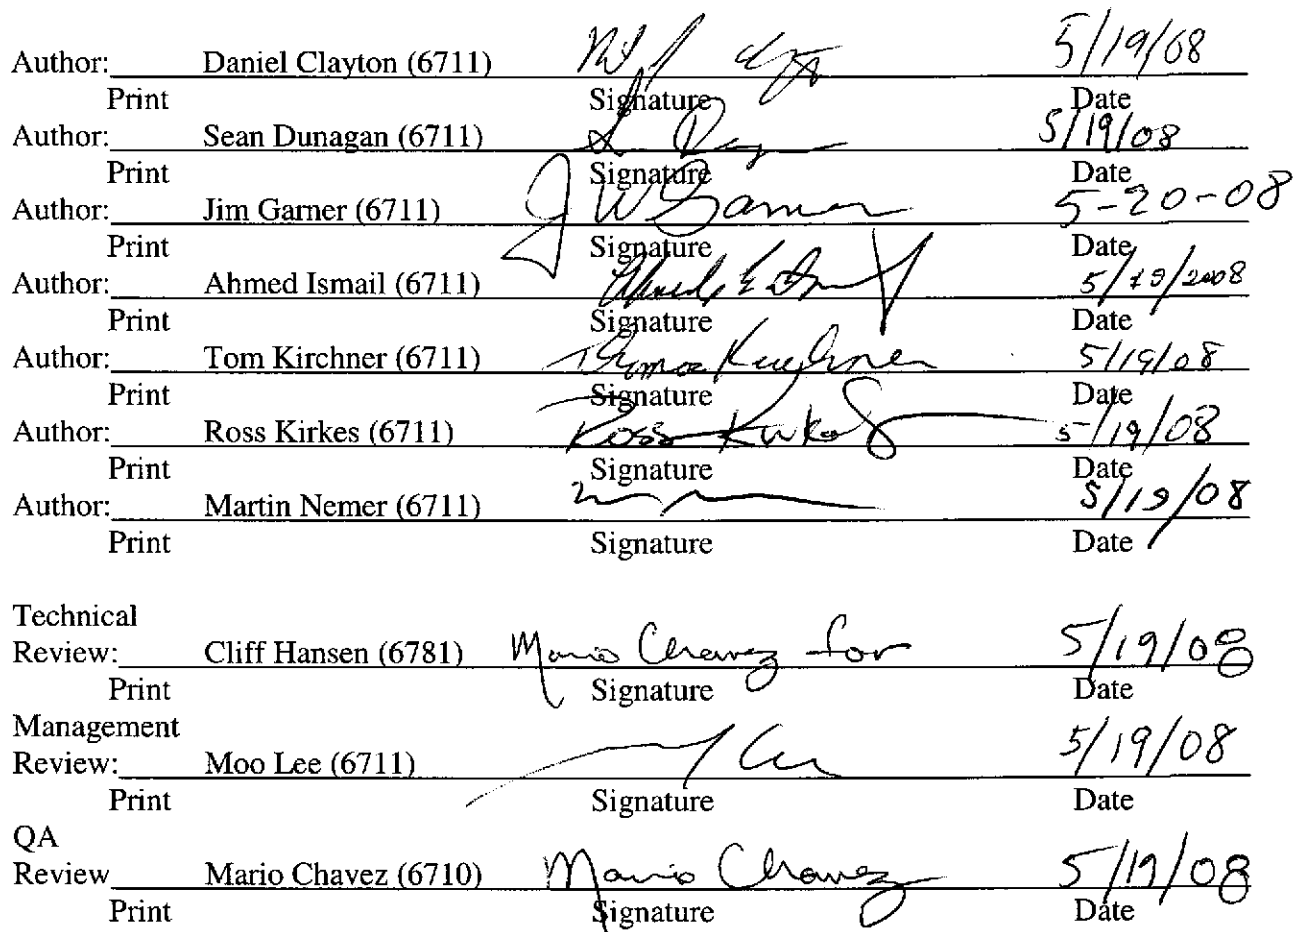 Author: Daniel Clayton (6711) 5/19/08
Print Signature Date
Author: Sean Dunagan (6711) 5/19/08
Print Signature Date
Author: Jim Garner (6711) J W Garner 5-20-08
Print Signature Date
Author: Ahmed Ismail (6711) 5/19/2008
Print Signature Date
Author: Tom Kirchner (6711) Thomas Kirchner 5/19/08
Print Signature Date
Author: Ross Kirkes (6711) Ross Kirkes 5/19/08
Print Signature Date
Author: Martin Nemer (6711) 5/19/08
Print Signature Date
Technical
Review: Cliff Hansen (6781) Mario Chavez for 5/19/08
Print Signature Date
Management
Review: Moo Lee (6711) 5/19/08
Print Signature Date
QA
Review Mario Chavez (6710) Mario Chavez 5/19/08
Print Signature Date